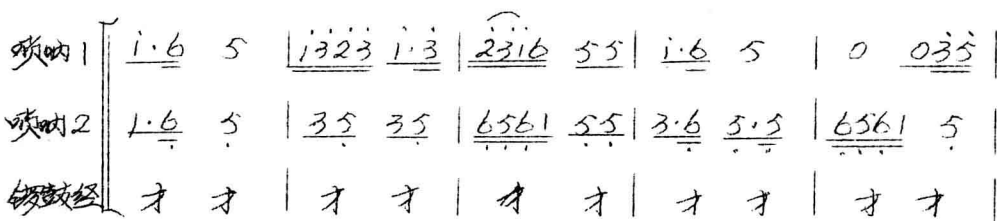 唢呐1 i·6 5 | i̇3̇2̇3̇ i̇·3̇ | 2̇3̇i̇6 55 | i·6 5 | 0 03̇5̇ |
唢呐2 1·6̣ 5̣ | 35̣ 35̣ | 6̣5̣6̣1 5̣5̣ | 3·6̣ 5̣·5̣ | 6̣5̣6̣1 5̣ |
锣鼓经 才 才 | 才 才 | 才 才 | 才 才 | 才 才 |